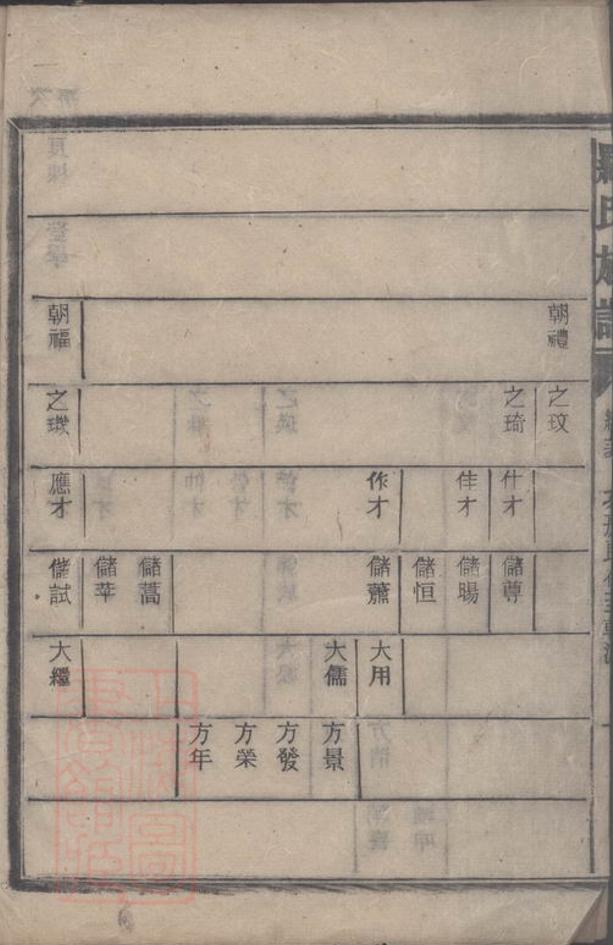 氏族譜
朝禮
朝福
之玟
之琦
之璣
仕才
佳才
作才
應才
儲尊
儲暘
儲恒
儲蕭
儲蒿
儲莘
儲試
大用
大儒
大繼
方景
方發
方榮
方年